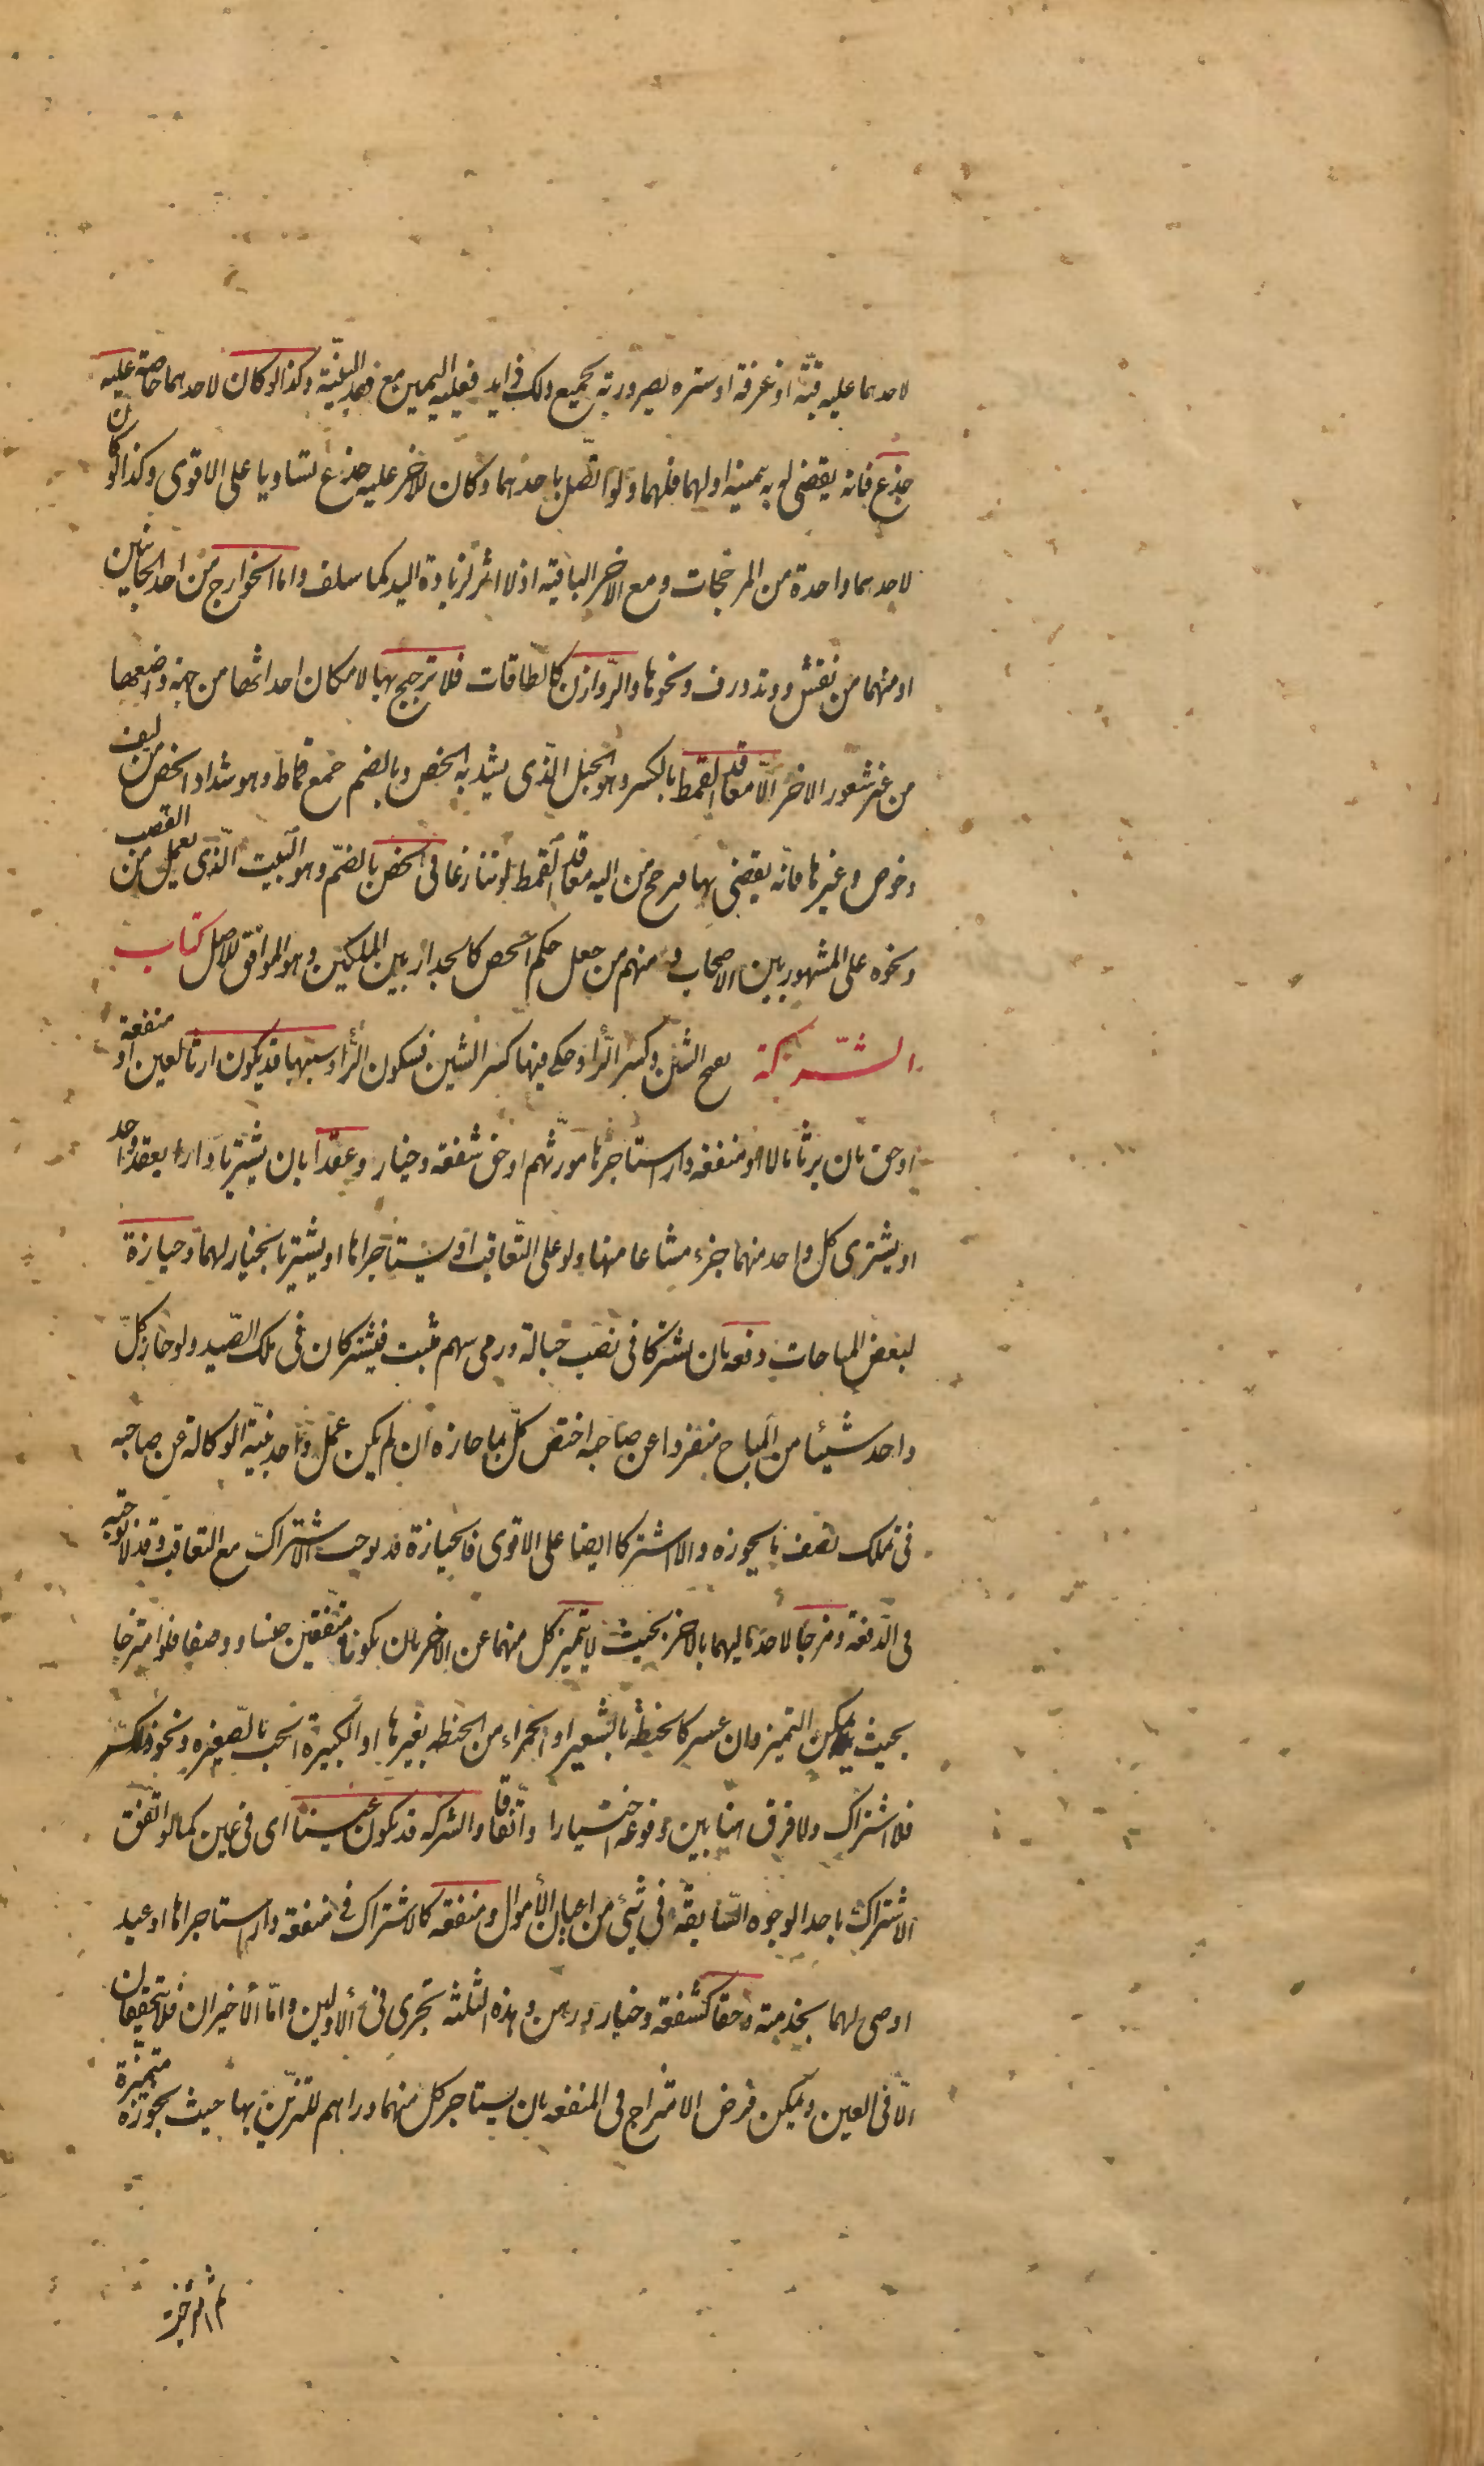 لاحدهما عليه قبة او غرفة او سترة لصيرورته بجميع ذلك ذا يد فعليه اليمين مع فقد البينة وكذا لو كان لاحدهما خاصة عليه
جذع فانه يقضى له به بيمينه اولهما فلهما ولو اتصل باحدهما وكان للاخر عليه جذع تساويا على الاقوى وكذا لو كان
لاحدهما واحدة من المرجحات ومع الاخر الباقية اذ لا اثر لزيادة اليد كما سلف واما الخوارج من احد الجانبين
او منهما من نقش ووتد ورف ونحوها والروازن كالطاقات فلا ترجيح بها لامكان احداثها من جهة واضعها
من غير شعور الاخر الا معاقد القمط بالكسر وهو الحبل الذى يشد به الخص وبالضم جمع قماط وهو شداد الخص من ليف
وخوص وغيرها فانه يقضى بها فيرجح من اليه معاقد القمط لو تنازعا فى الخص بالضم وهو البيت الذى يعمل من القصب
ونحوه على المشهور بين الاصحاب ومنهم من جعل حكم الخص كالجدار بين الملكين وهو الموافق للاصل كتاب
الشركة بفتح الشين وكسر الراء وحكى فيها كسر الشين فسكون الراء وسببها قد يكون ارثا لعين او منفعة
او حق بان يرثا مالا او منفعة دار استاجرها مورثهم او حق شفعة وخيار وعقدا بان يشتريا دارا بعقد واحد
او يشترى كل واحد منهما جزء مشاعا منها ولو على التعاقب او يستاجراها او يشتريا بخيار لهما وحيازة
لبعض المباحات دفعة بان يشتركا فى نصب حبالة ورمى سهم مثبت فيشتركان فى ملك الصيد ولو حاز كل
واحد شيئا من المباح منفردا عن صاحبه اختص كل بما حازه ان لم يكن عمل واحد بنية الوكالة عن صاحبه
فى تملك نصف ما يحوزه والا اشتركا ايضا على الاقوى فالحيازة قد يوجب الاشتراك مع التعاقب وقد لا توجبه
فى الدفعة ومزجا لاحد ماليهما بالاخر بحيث لا يتميز كل منهما عن الاخر بان يكونا متفقين جنسا ووصفا فلو امتزجا
بحيث يمكن التميز وان عسر كالحنطة بالشعير او الحمراء من الحنطة بغيرها او الكبيرة الحب بالصغيرة ونحو ذلك
فلا اشتراك ولا فرق هنا بين وقوعه اختيارا واتفاقا والشركة قد يكون عينا اى فى عين كما لو اتفق
الاشتراك باحد الوجوه السابقة فى شئ من اعيان الاموال ومنفعة كالاشتراك فى منفعة دار استاجراها او عبد
اوصى لهما بخدمته وحقا كشفعة وخيار ورهن وهذه الثلثة تجرى فى الاولين واما الاخيران فلا يتحققان
الا فى العين ويمكن فرض الامتزاج فى المنفعة بان يستاجر كل منهما دراهم للتزين بها حيث نجوزه متميزة